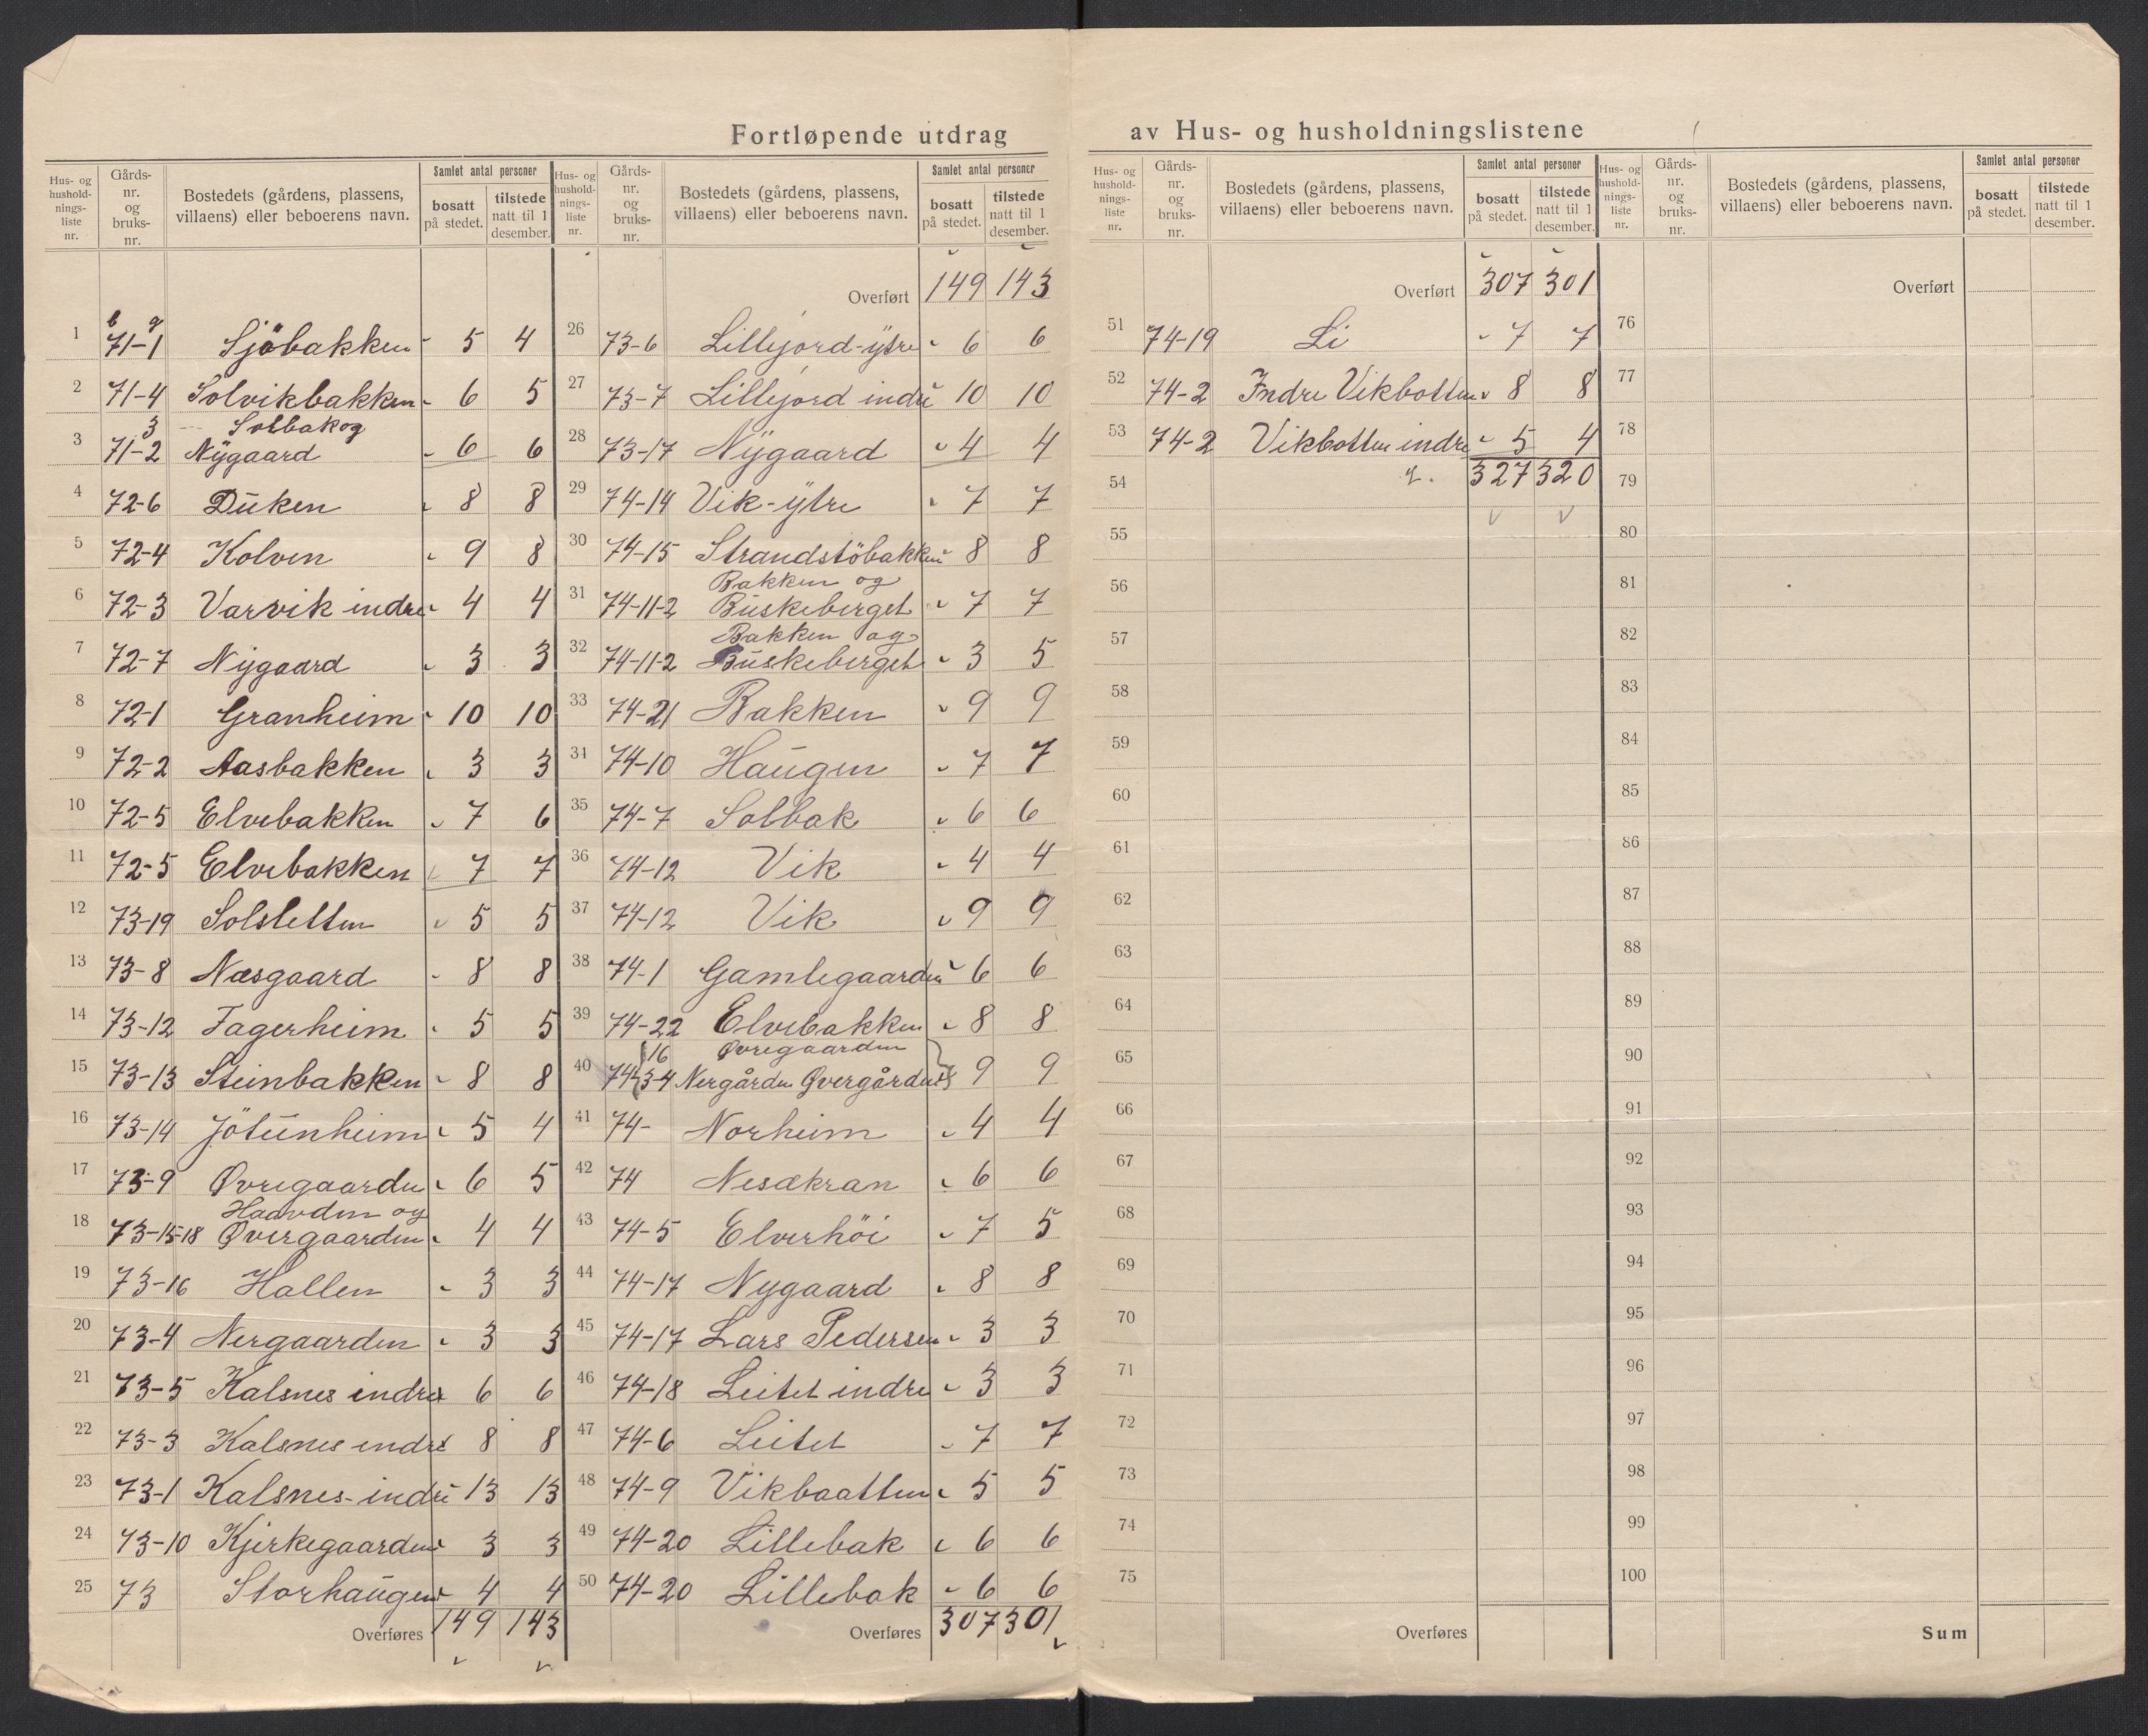 Fortløpende utdrag av Hus- og husholdningslistene
Hus- og hushold-nings-liste nr. Gårds-nr. og bruks-nr. Bostedets (gårdens, plassens, villaens) eller beboerens navn. Samlet antal personer bosatt på stedet. tilstede natt til 1 desember.
b g
1 71-1 Sjöbakken 5 4
2 71-4 Solvikbakken 6 5
3 Solbak og
3 71-2 Nygaard 6 6
4 72-6 Duken 8 8
5 72-4 Kolven 9 8
6 72-3 Varvik indre 4 4
7 72-7 Nygaard 3 3
8 72-1 Granheim 10 10
9 72-2 Aasbakken 3 3
10 72-5 Elvebakken 7 6
11 72-5 Elvebakken 7 7
12 73-19 Solsletten 5 5
13 73-8 Næsgaard 8 8
14 73-12 Fagerheim 5 5
15 73-13 Steinbakken 8 8
16 73-14 Jötunheim 5 4
17 73-9 Øvregaarden 6 5
Haavden og
18 73-15-18 Øvergaarden 4 4
19 73-16 Hallen 3 3
20 73-4 Nergaarden 3 3
21 73-5 Kalsnes indre 6 6
22 73-3 Kalsnes indre 8 8
23 73-1 Kalsnes-indre 13 13
24 73-10 Kjirkegaarden 3 3
25 73 Storhaugen 4 4
Overføres 149 143
Hus- og hushold-nings-liste nr. Gårds-nr. og bruks-nr. Bostedets (gårdens, plassens, villaens) eller beboerens navn. Samlet antal personer bosatt på stedet. tilstede natt til 1 desember.
Overført 149 143
26 73-6 Lillejord-ytre 6 6
27 73-7 Lillejord indre 10 10
28 73-17 Nygaard 4 4
29 74-14 Vik-ytre 7 7
30 74-15 Strandstöbakken 8 8
Bakken og
31 74-11-2 Buskeberget 7 7
Bakken og
32 74-11-2 Buskeberget 3 5
33 74-21 Bakken 9 9
34 74-10 Haugen 7 7
35 74-7 Solbak 6 6
36 74-12 Vik 4 4
37 74-12 Vik 9 9
38 74-1 Gamlegaarden 6 6
39 74-22 Elvebakken 8 8
16 Øvregaarden
40 74-3-4 Nergården Øvergården 9 9
41 74- Norheim 4 4
42 74 Nesækran 6 6
43 74-5 Elverhöi 7 5
44 74-17 Nygaard 8 8
45 74-17 Lars Pedersen 3 3
46 74-18 Leitet indre 3 3
47 74-6 Leitet 7 7
48 74-9 Vikbaatten 5 5
49 74-20 Lillebak 6 6
50 74-20 Lillebak 6 6
Overføres 307 301
Hus- og hushold-nings-liste nr. Gårds-nr. og bruks-nr. Bostedets (gårdens, plassens, villaens) eller beboerens navn. Samlet antal personer bosatt på stedet. tilstede natt til 1 desember.
Overført 307 301
51 74-19 Li 7 7
52 74-2 Indre Vikbotten 8 8
53 74-2 Vikbotten indre 5 4
54 327 320
55
56
57
58
59
60
61
62
63
64
65
66
67
68
69
70
71
72
73
74
75
Overføres
Hus- og hushold-nings-liste nr. Gårds-nr. og bruks-nr. Bostedets (gårdens, plassens, villaens) eller beboerens navn. Samlet antal personer bosatt på stedet. tilstede natt til 1 desember.
Overført
76
77
78
79
80
81
82
83
84
85
86
87
88
89
90
91
92
93
94
95
96
97
98
99
100
Sum